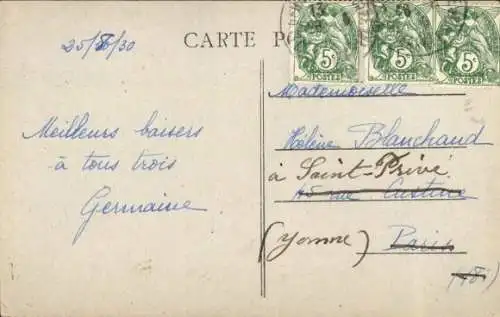 25/8/30
CARTE PO
5c
POSTES
5c
POSTES
5c
POSTES
Meilleurs baisers
à tous trois
Germaine
Mademoiselle
Hélène Blanchaud
à Saint-Privé
45 rue Custine
(Yonne) Paris
(18e)